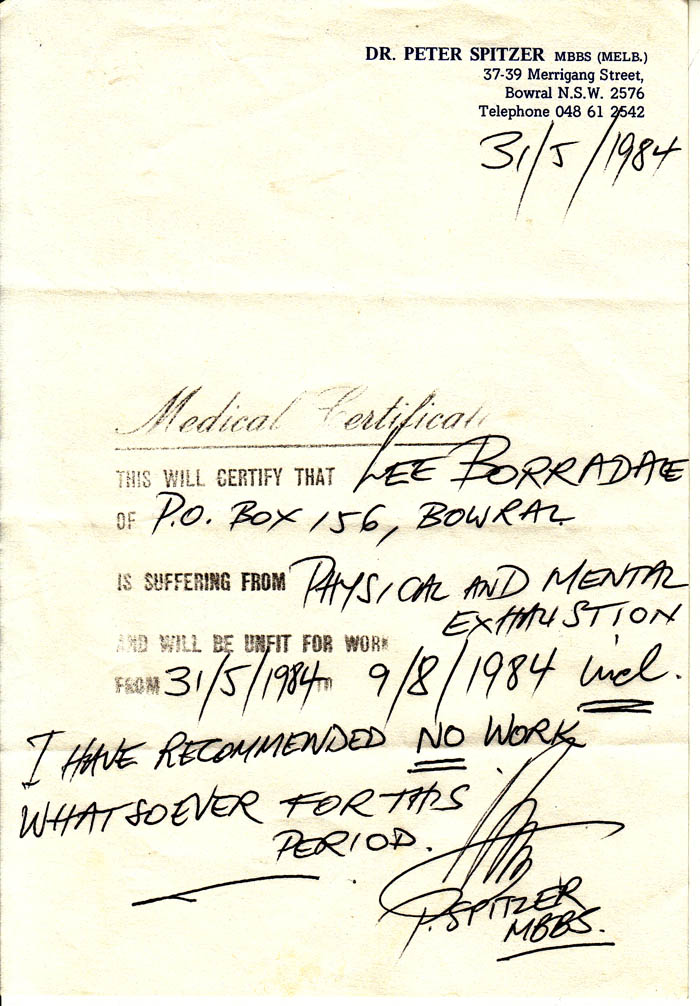 DR. PETER SPITZER MBBS (MELB.)
37-39 Merrigang Street,
Bowral N.S.W. 2576
Telephone 048 61 2542
31/5/1984
Medical Certificate
THIS WILL CERTIFY THAT LEE BORRADALE
OF P.O. BOX 156, BOWRAL
IS SUFFERING FROM PHYSICAL AND MENTAL
EXHAUSTION
AND WILL BE UNFIT FOR WORK
FROM 31/5/1984 TO 9/8/1984 incl.
I HAVE RECOMMENDED NO WORK
WHATSOEVER FOR THIS
PERIOD.
P. SPITZER
MBBS.